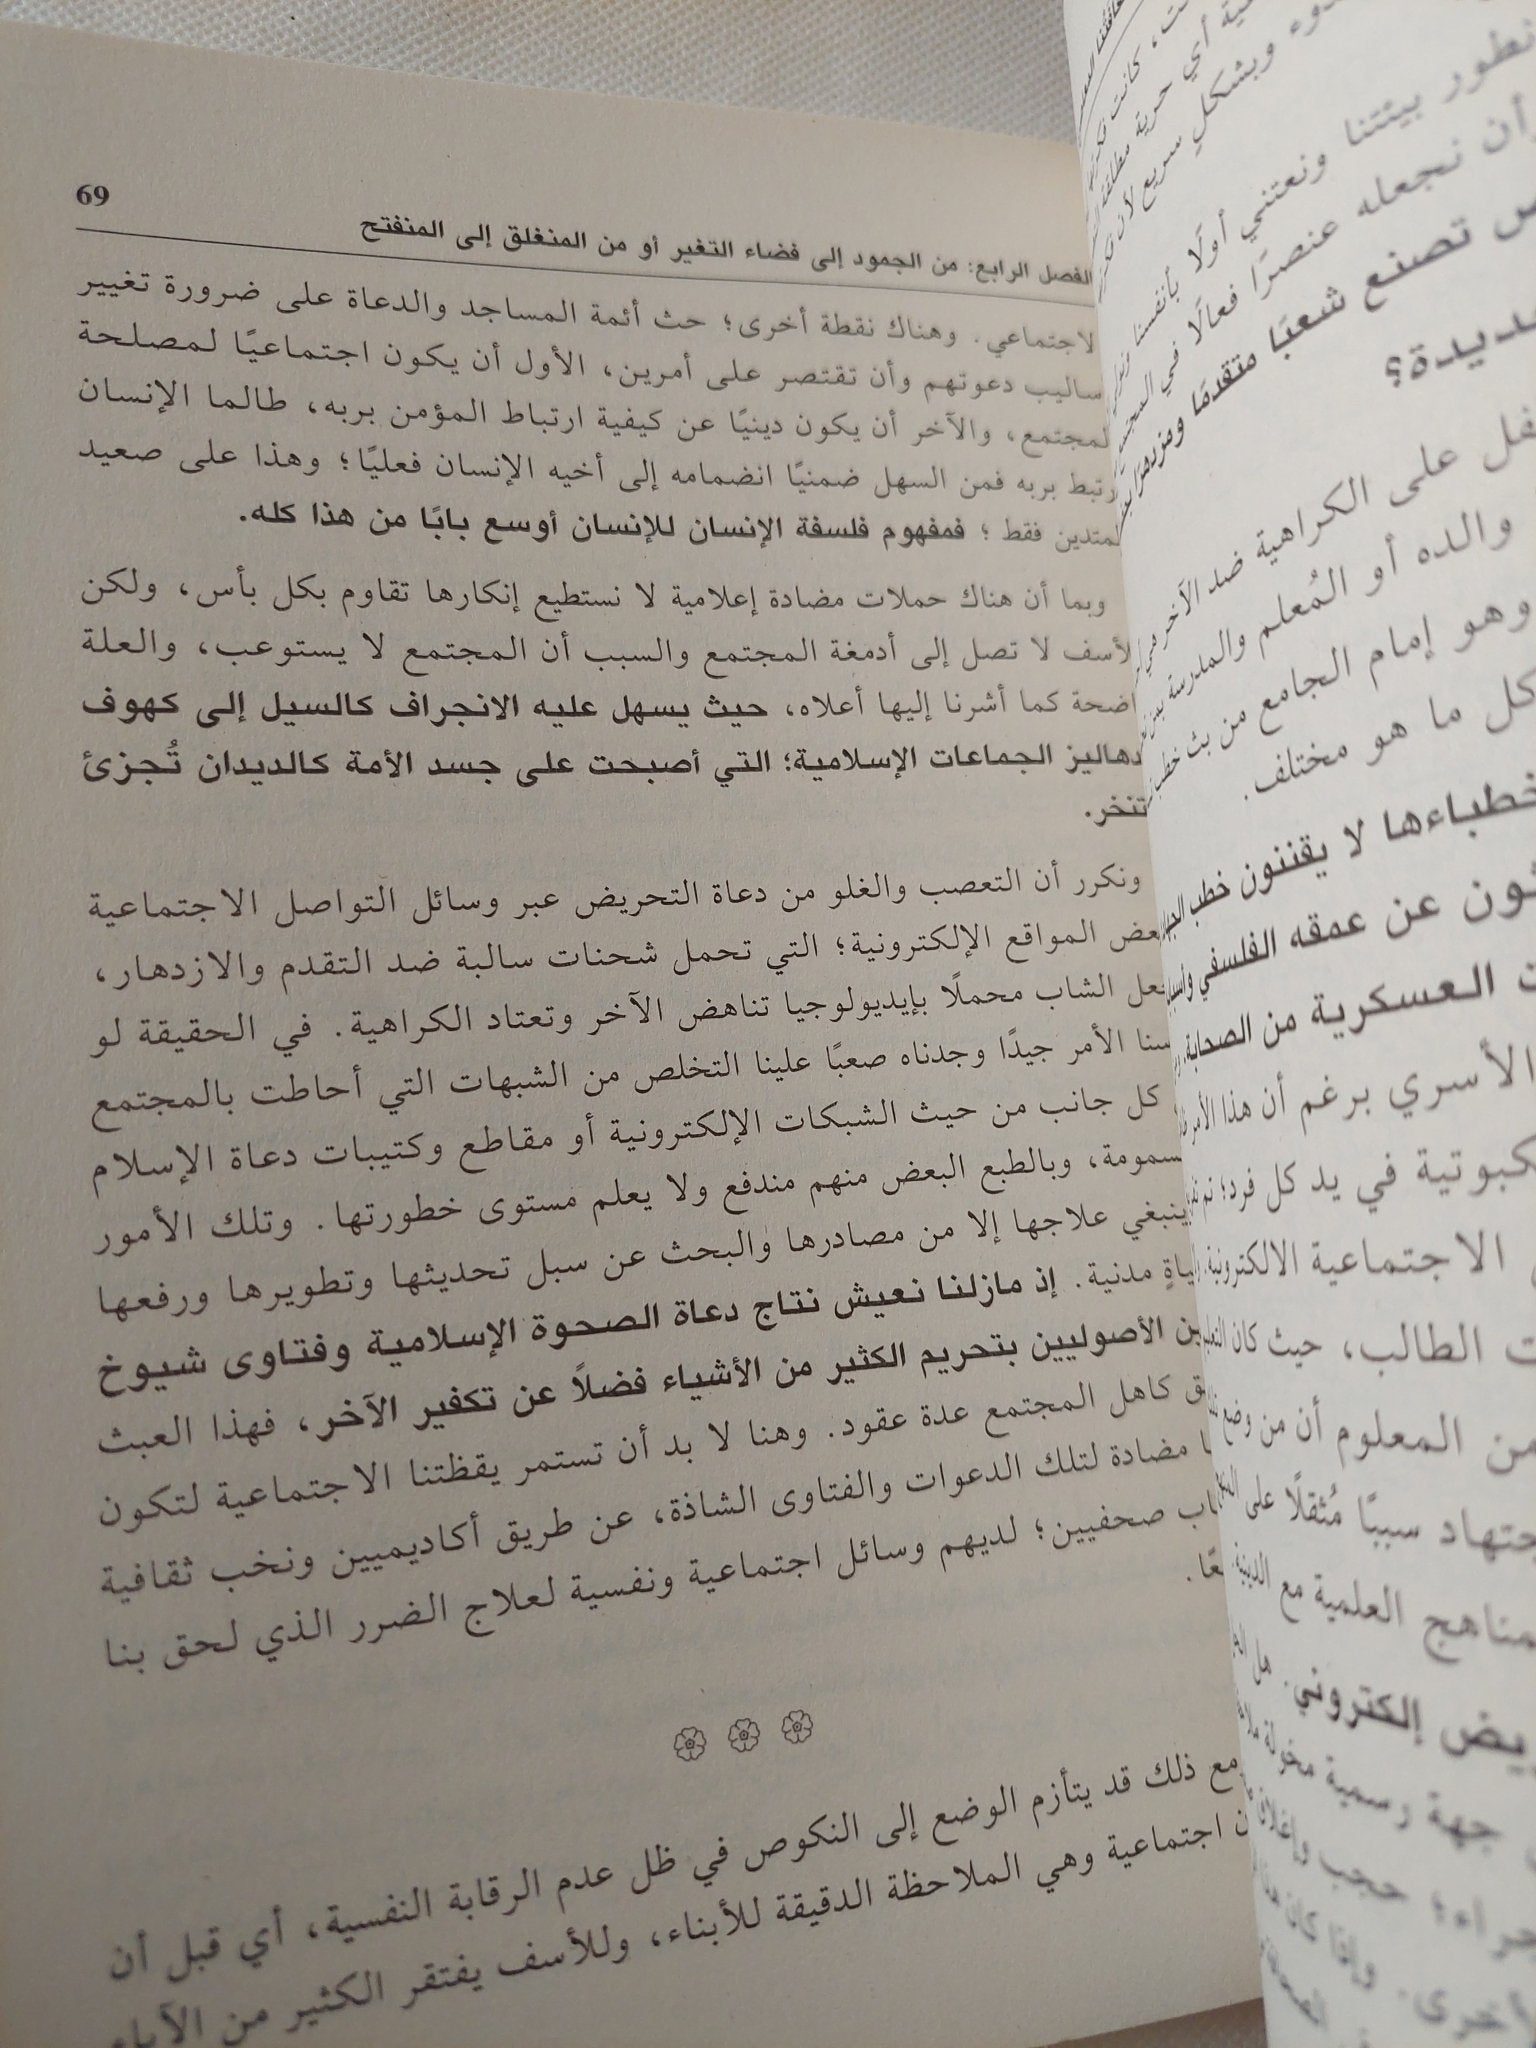 69
الفصل الرابع: من الجمود إلى فضاء التغير أو من المنغلق إلى المنفتح
لاجتماعي. وهناك نقطة أخرى؛ حث أئمة المساجد والدعاة على ضرورة تغيير
ساليب دعوتهم وأن تقتصر على أمرين، الأول أن يكون اجتماعيًا لمصلحة
لمجتمع، والآخر أن يكون دينيًا عن كيفية ارتباط المؤمن بربه، طالما الإنسان
رتبط بربه فمن السهل ضمنيًا انضمامه إلى أخيه الإنسان فعليًا؛ وهذا على صعيد
لمتدين فقط؛ فمفهوم فلسفة الإنسان للإنسان أوسع بابًا من هذا كله.
وبما أن هناك حملات مضادة إعلامية لا نستطيع إنكارها تقاوم بكل بأس، ولكن
لأسف لا تصل إلى أدمغة المجتمع والسبب أن المجتمع لا يستوعب، والعلة
اضحة كما أشرنا إليها أعلاه، حيث يسهل عليه الانجراف كالسيل إلى كهوف
دهاليز الجماعات الإسلامية؛ التي أصبحت على جسد الأمة كالديدان تُجزئ
تنخر.
ونكرر أن التعصب والغلو من دعاة التحريض عبر وسائل التواصل الاجتماعية
عض المواقع الإلكترونية؛ التي تحمل شحنات سالبة ضد التقدم والازدهار،
جعل الشاب محملًا بإيديولوجيا تناهض الآخر وتعتاد الكراهية. في الحقيقة لو
سنا الأمر جيدًا وجدناه صعبًا علينا التخلص من الشبهات التي أحاطت بالمجتمع
كل جانب من حيث الشبكات الإلكترونية أو مقاطع وكتيبات دعاة الإسلام
سمومة، وبالطبع البعض منهم مندفع ولا يعلم مستوى خطورتها. وتلك الأمور
ينبغي علاجها إلا من مصادرها والبحث عن سبل تحديثها وتطويرها ورفعها
ياةٍ مدنية. إذ مازلنا نعيش نتاج دعاة الصحوة الإسلامية وفتاوى شيوخ
ين الأصوليين بتحريم الكثير من الأشياء فضلاً عن تكفير الآخر، فهذا العبث
ق كاهل المجتمع عدة عقود. وهنا لا بد أن تستمر يقظتنا الاجتماعية لتكون
ا مضادة لتلك الدعوات والفتاوى الشاذة، عن طريق أكاديميين ونخب ثقافية
اب صحفيين؛ لديهم وسائل اجتماعية ونفسية لعلاج الضرر الذي لحق بنا
عًا.
ومع ذلك قد يتأزم الوضع إلى النكوص في ظل عدم الرقابة النفسية، أي قبل أن
ن اجتماعية وهي الملاحظة الدقيقة للأبناء، وللأسف يفتقر الكثير من الآباء
كانت
أي حرية مطلقة
وبشكلٍ سريع لأن
تطور بيئتنا ونعتني أولًا بأنفسنا
أن نجعله عنصرًا فعالًا في
تصنع شعبًا متقدمًا ومزدهرًا
ديدة؟
على الكراهية ضد الآخر
والده أو المُعلم والمدرسة
وهو إمام الجامع من بث خطب
كل ما هو مختلف.
خطباءها لا يقننون خطب
ون عن عمقه الفلسفي
ت العسكرية من الصحابة
الأسري برغم أن هذا الأمر
كبوتية في يد كل فرد؛ تم
الاجتماعية الالكترونية
ت الطالب، حيث كان
من المعلوم أن من وضع
جتهاد سببًا مُثقلًا على
مناهج العلمية مع الدينية
يض إلكتروني. هل
جهة رسمية مخولة
جراء؛ حجب وإغلاق
أخرى. وإذا كان